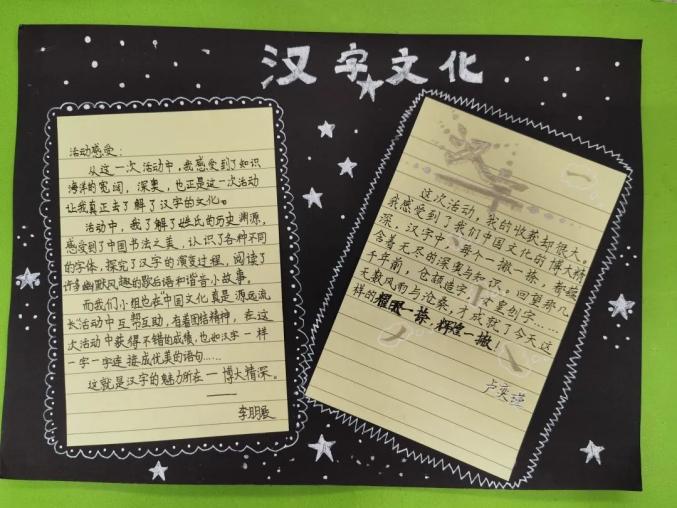 汉字文化
活动感受:
从这一次活动中,我感受到了知识
海洋的宽阔,深奥,也正是这一次活动
让我真正去了解了汉字的文化。
活动中,我了解了姓氏的历史渊源,
感受到了中国书法之美,认识了各种不同
的字体,探究了汉字的演变过程,阅读了
许多幽默风趣的歇后语和谐音小故事。
而我们小组也在中国文化真是源远流
长活动中互帮互助,有着团结精神,在这
次活动中获得不错的成绩,也如汉字一样
一字一字连接成优美的语句……
这就是汉字的魅力所在一博大精深。
李朋
汉字
这次活动,我的收获却很大。
我感受到了我们中国文化的博大精
深,汉字中,每个一撇一捺,都蕴
含着无尽的深奥与知识。回望那几
千年前,仓颉造字,文里刻字……
无数风雨与沧桑,才成就了今天这
样的耀眼一捺,辉煌一撇!
卢奕